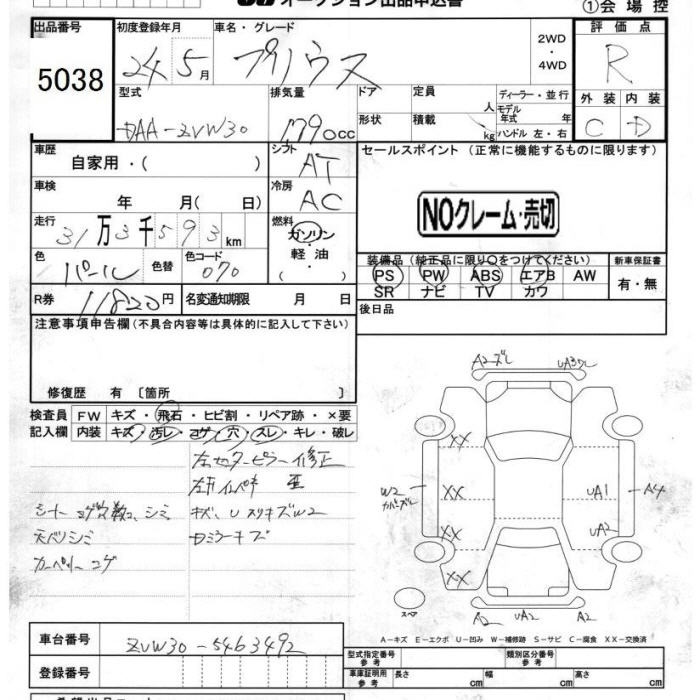 オークション出品申込書
①会場控
出品番号 初度登録年月 車名・グレード 評価点
5038 24年5月 プリウス 2WD・4WD R
型式 排気量 ドア 定員 人 ディーラー・並行
モデル年式 年 外装 内装
DAA-ZVW30 1790cc 形状 積載 kg ハンドル 左・右 C D
車歴 自家用・( ) シフト AT セールスポイント (正常に機能するものに限ります)
車検 年 月( 日) 冷房 AC
NOクレーム・売切
走行 31万3千593km 燃料 ガソリン・軽油・( )
色 パール 色替 色コード 070
装備品(純正品に限り○をつけてください) 新車保証書
PS PW ABS エアB AW 有・無
SR ナビ TV カワ
R券 11820円 名変通知期限 月 日
後日品
注意事項申告欄(不具合内容等は具体的に記入して下さい)
修復歴 有 〔箇所 〕
検査員 FW キズ・飛石・ヒビ割・リペア跡・×要
記入欄 内装 キズ・汚レ・コゲ・穴・スレ・キレ・破レ
左センターピラー修正
シート コゲ穴数コ シミ キズ、U スリキズW2
天バリシミ
カーペット コゲ
A2 ズレ UA3
XX
W2 XX UA1 A4
XX UA2
XX
スペア A2 UA2 A2
A−キズ E−エクボ U−凹み W−補修跡 S−サビ C−腐食 XX−交換済
車台番号 ZVW30-5463492
登録番号
型式指定番号 参考 類別区分番号 参考
車庫証明用 参考 長さ cm 幅 cm 高さ cm